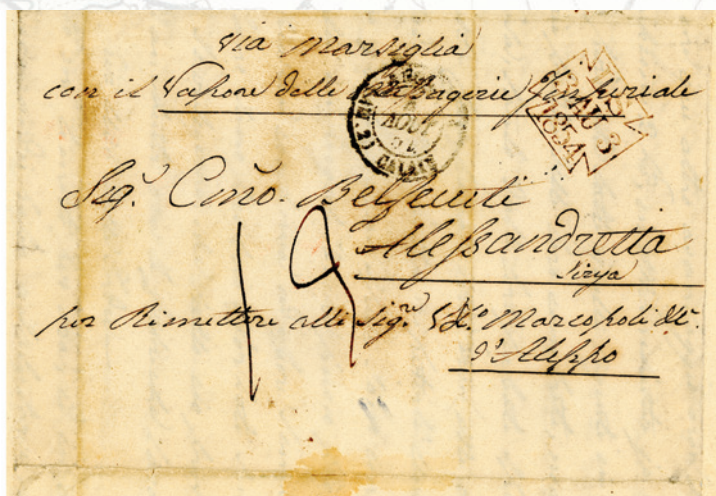 via Marsiglia
con il Vapore delle Messagerie Imperiale
AOUT
54
CALAIS
AU 3
1854
Sigr. Cmõ. Belfenti
Alessandretta
Sirya
19
per Rimettere alli Sigri Marcopoli
d'Aleppo